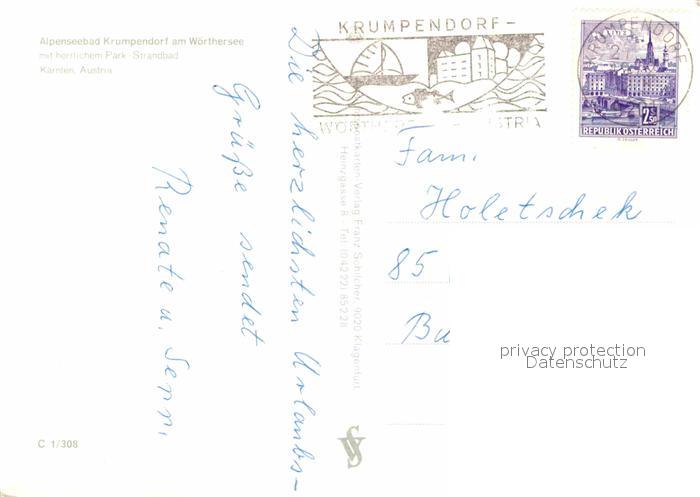 Alpenseebad Krumpendorf am Wörthersee
mit herrlichem Park-Strandbad
Kärnten, Austria
KRUMPENDORF-
KRUMPENDORF
2 S 50
REPUBLIK ÖSTERREICH
Die herzlichsten Urlaubs-
Grüße sendet
Renate u.
Fam.
Holetschek
85
Bu
privacy protection
Datenschutz
Postkarten-Verlag Franz Schilcher, 9020 Klagenfurt
Heinzgasse 8 - Tel. (04222) 85228
C 1/308